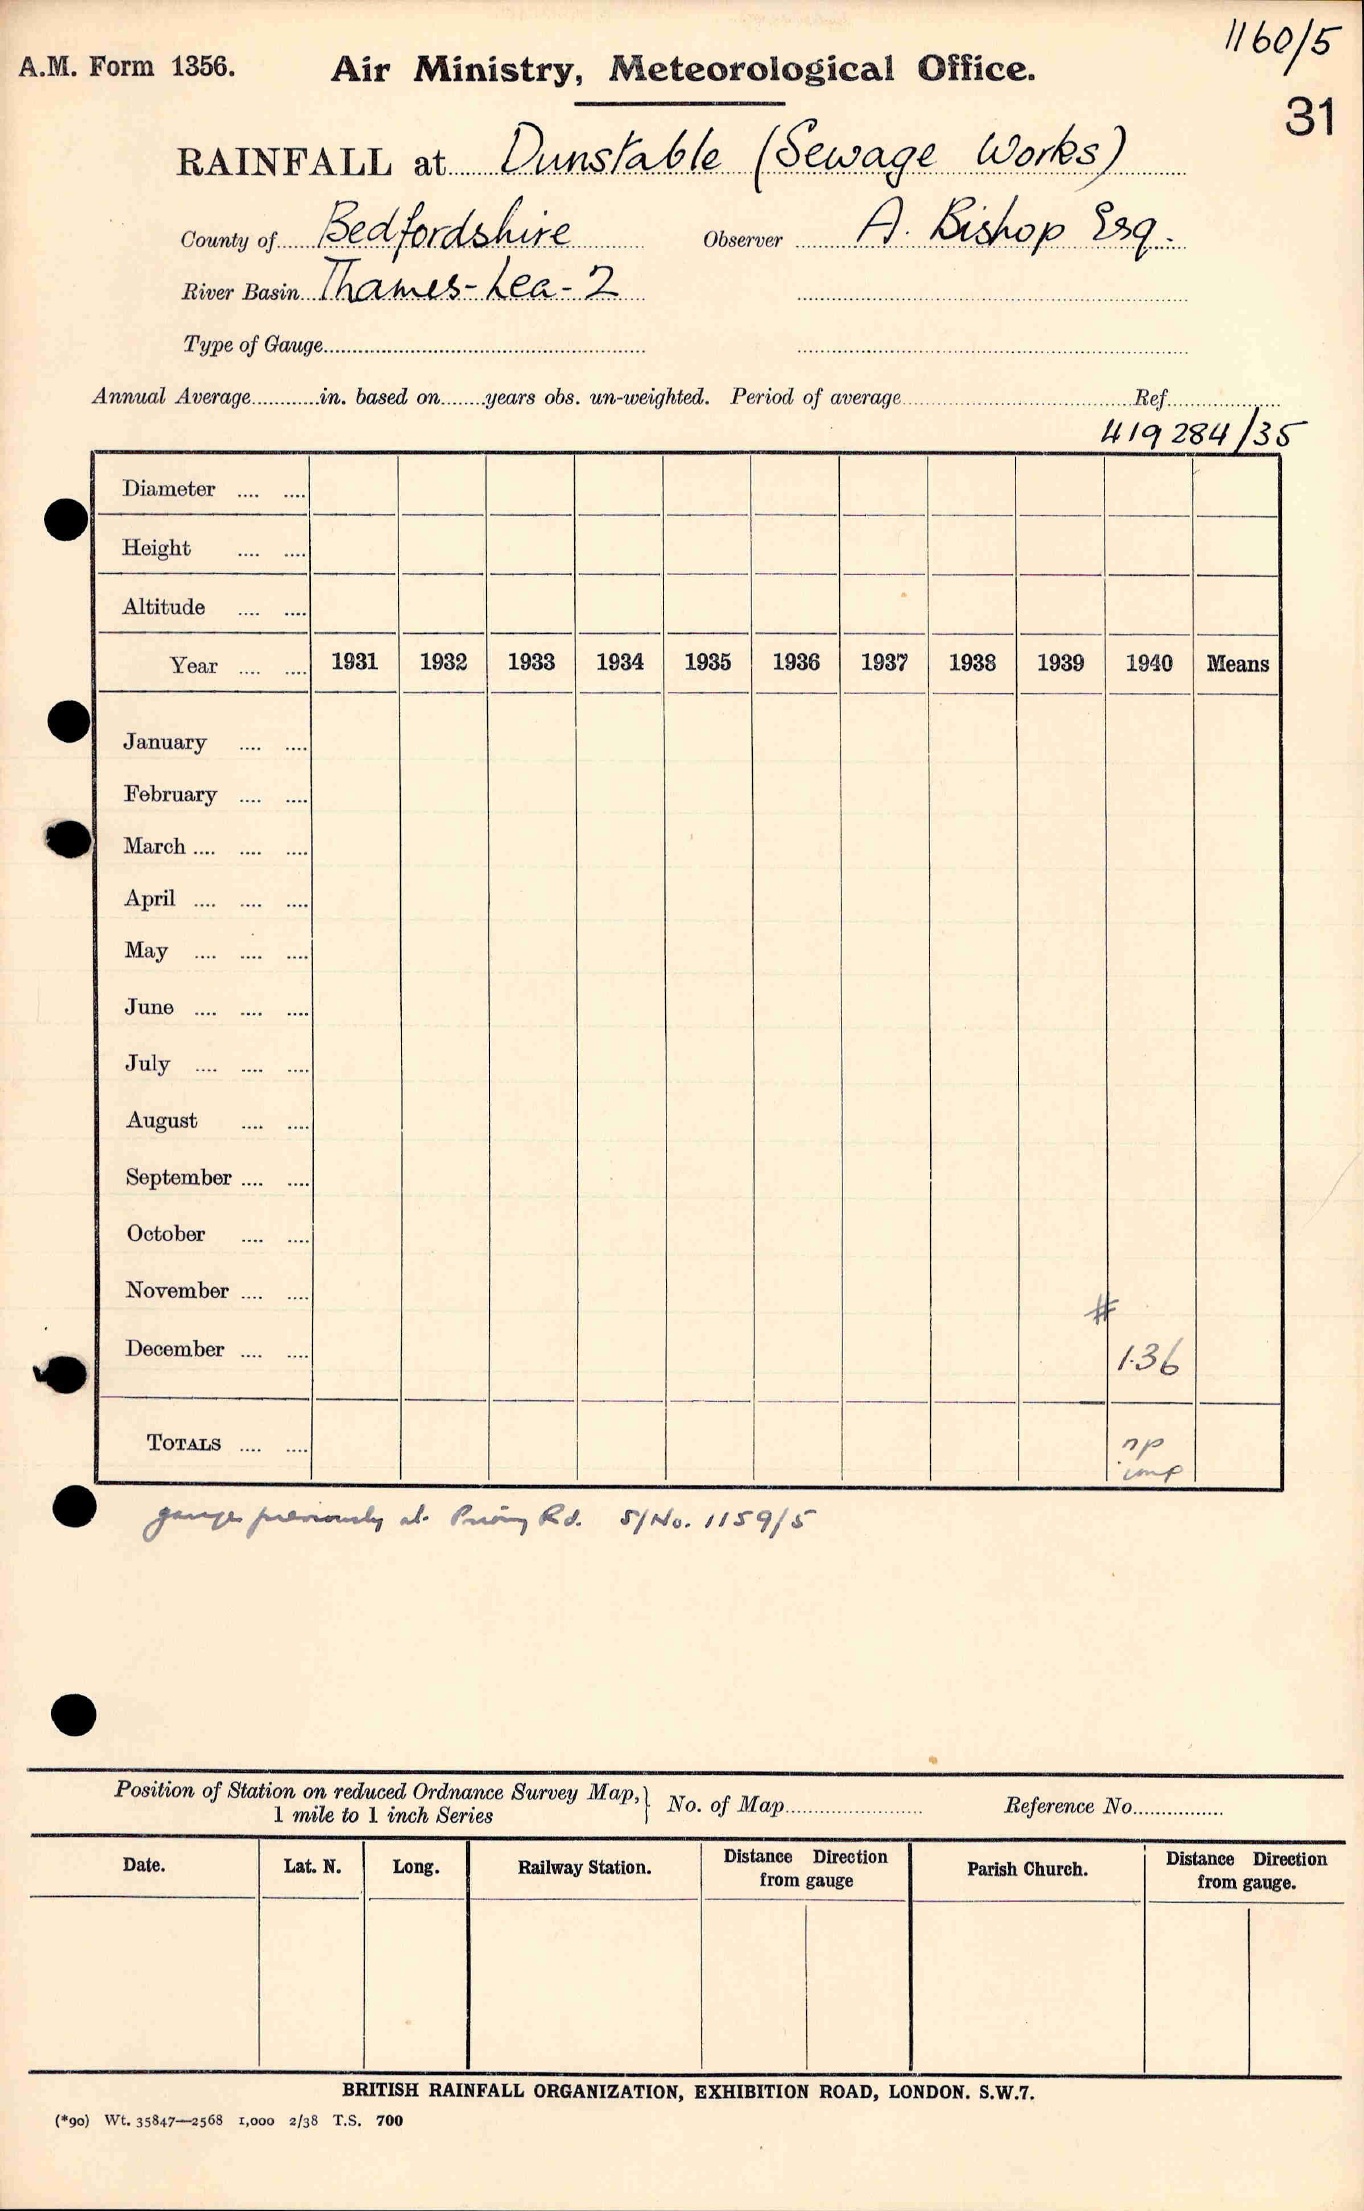 1160/5
A.M. Form 1356. Air Ministry, Meteorological Office.
31
RAINFALL at Dunstable (Sewage Works)
County of Bedfordshire Observer A. Bishop Esq.
River Basin Thames-Lea-2
Type of Gauge
Annual Average in. based on years obs. un-weighted. Period of average Ref.
419284/35
Diameter
Height
Altitude
Year 1931 1932 1933 1934 1935 1936 1937 1938 1939 1940 Means
January
February
March
April
May
June
July
August
September
October
November
#
December 1.36
TOTALS np
imp
gauge previously at Priory Rd. S/No. 1159/5
Position of Station on reduced Ordnance Survey Map, } No. of Map Reference No.
1 mile to 1 inch Series
Date. Lat. N. Long. Railway Station. Distance Direction from gauge Parish Church. Distance Direction from gauge.
BRITISH RAINFALL ORGANIZATION, EXHIBITION ROAD, LONDON. S.W.7.
(*90) Wt. 35847—2568 1,000 2/38 T.S. 700